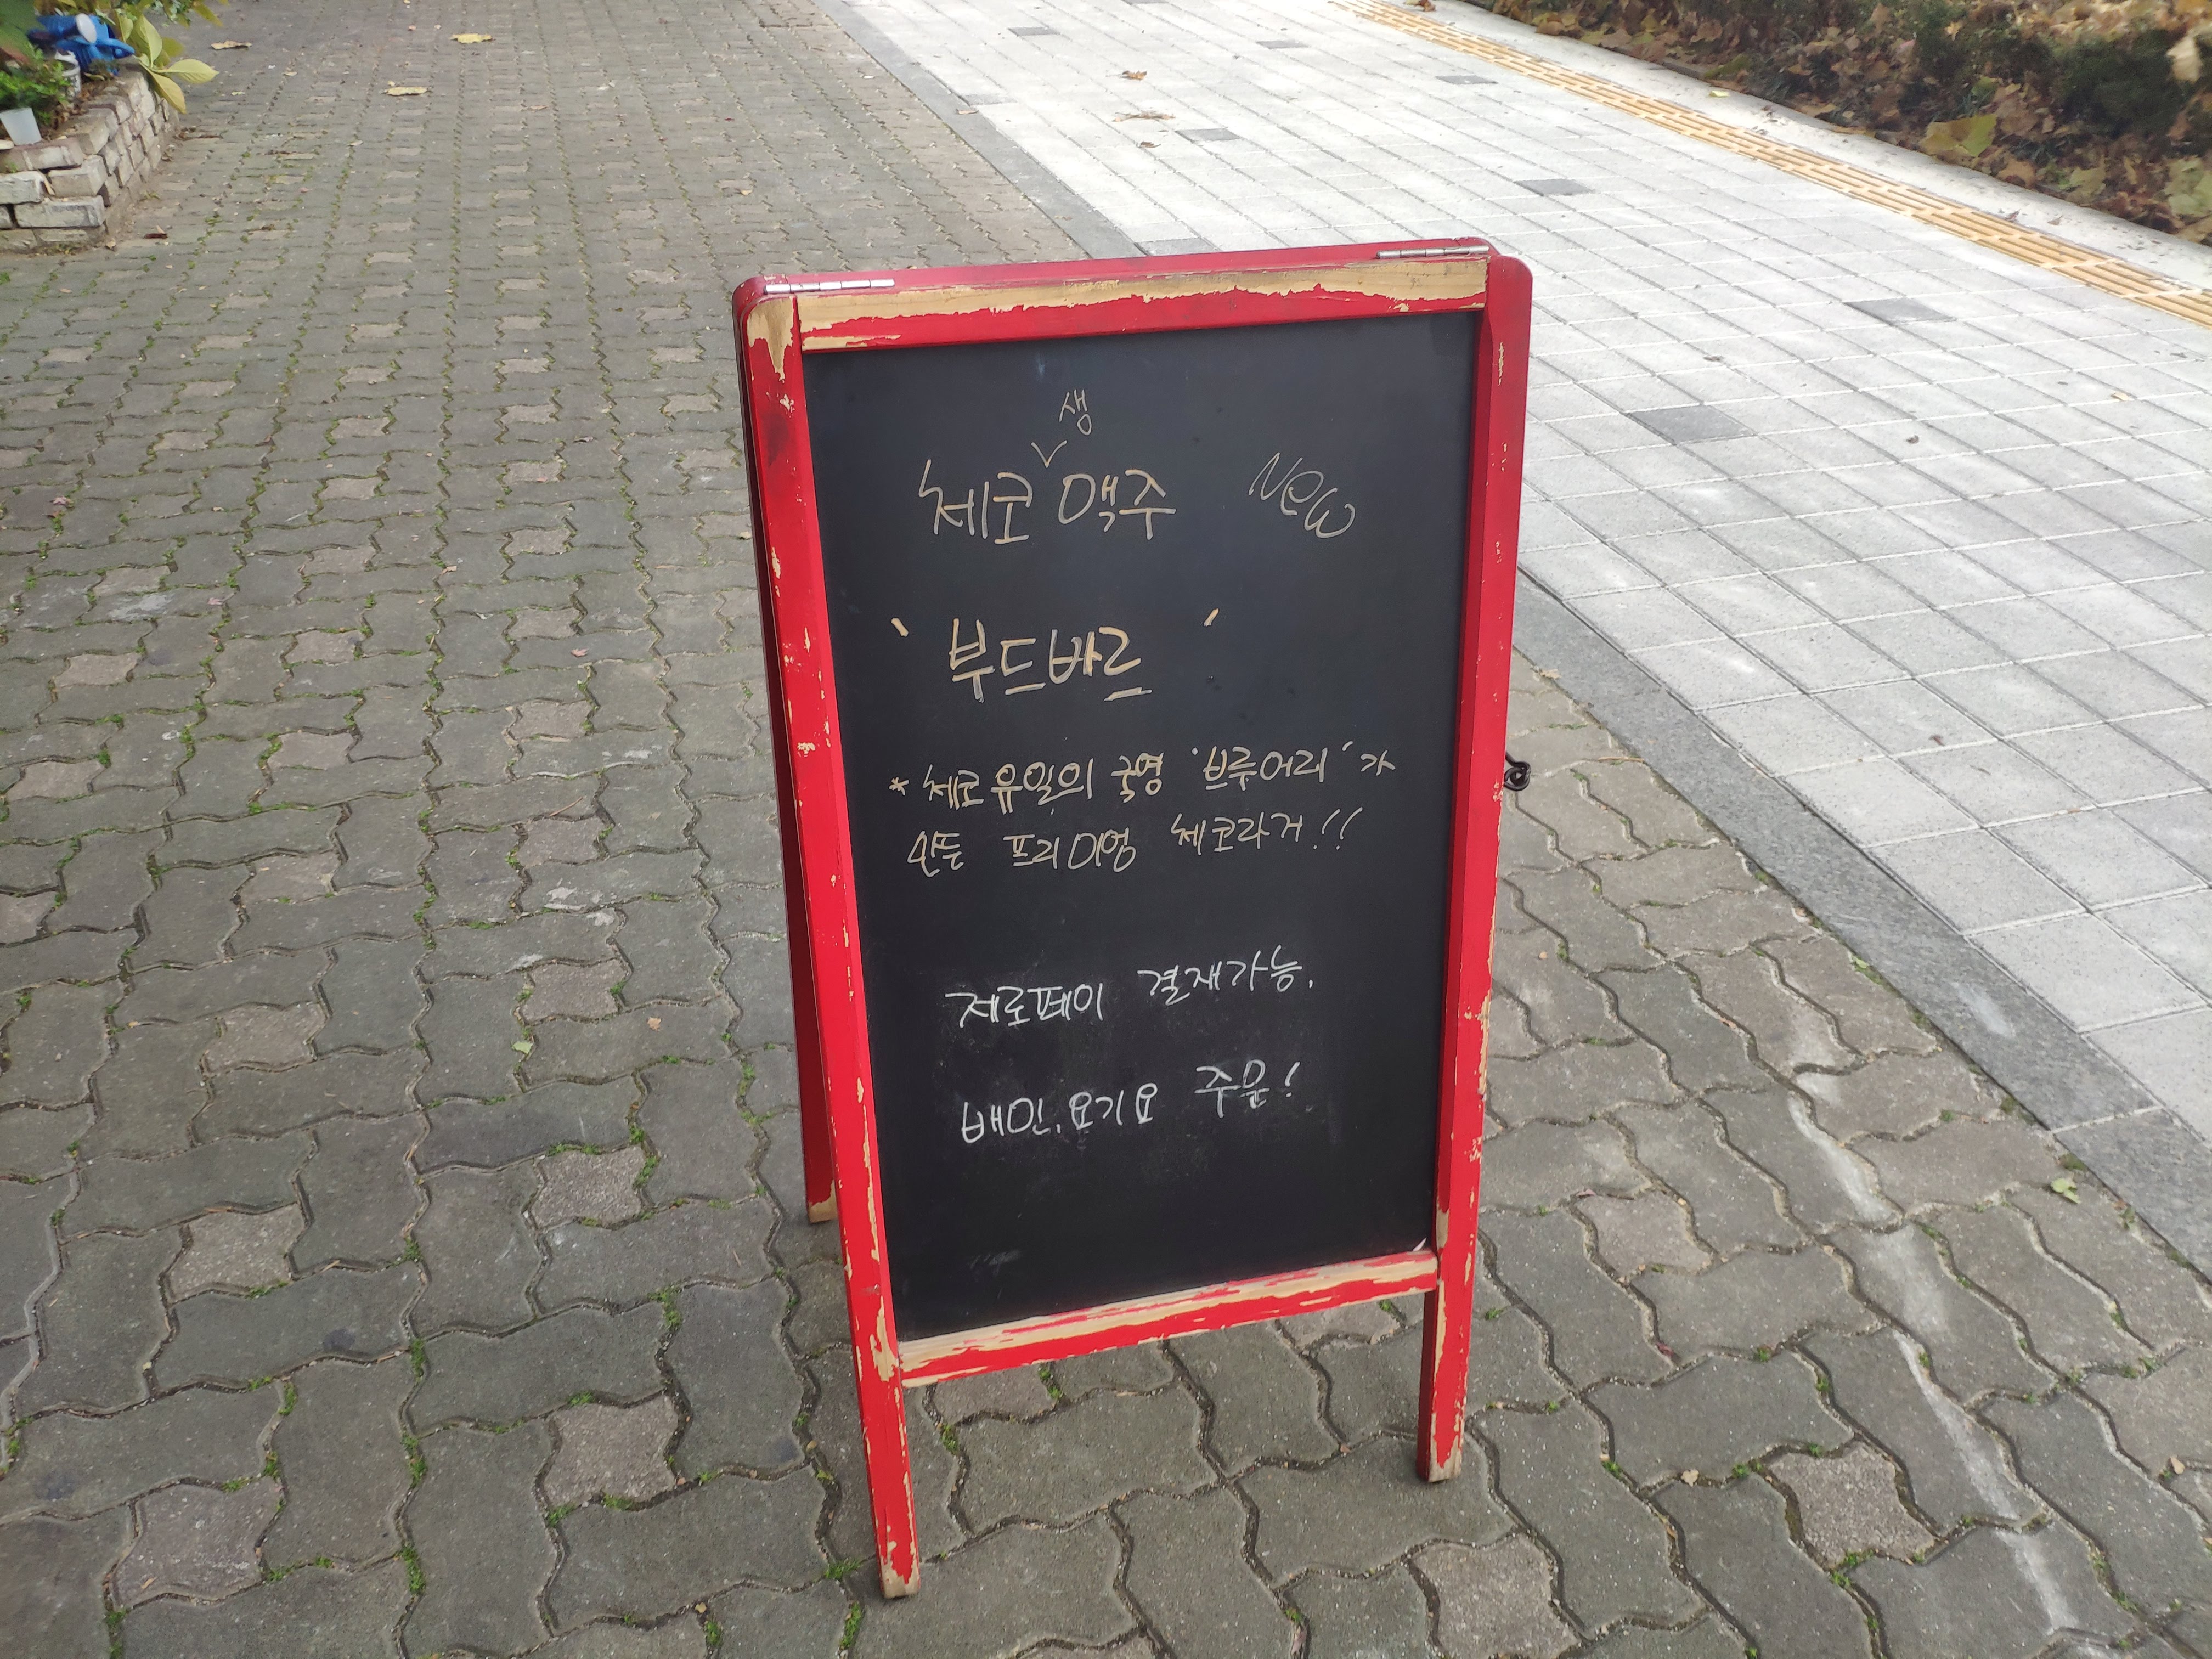 체코 생 맥주 New
'부드바르'
* 체코 유일의 국영 '브루어리'가
만든 프리미엄 체코라거!!
제로페이 결재가능.
배민, 요기요 주문!